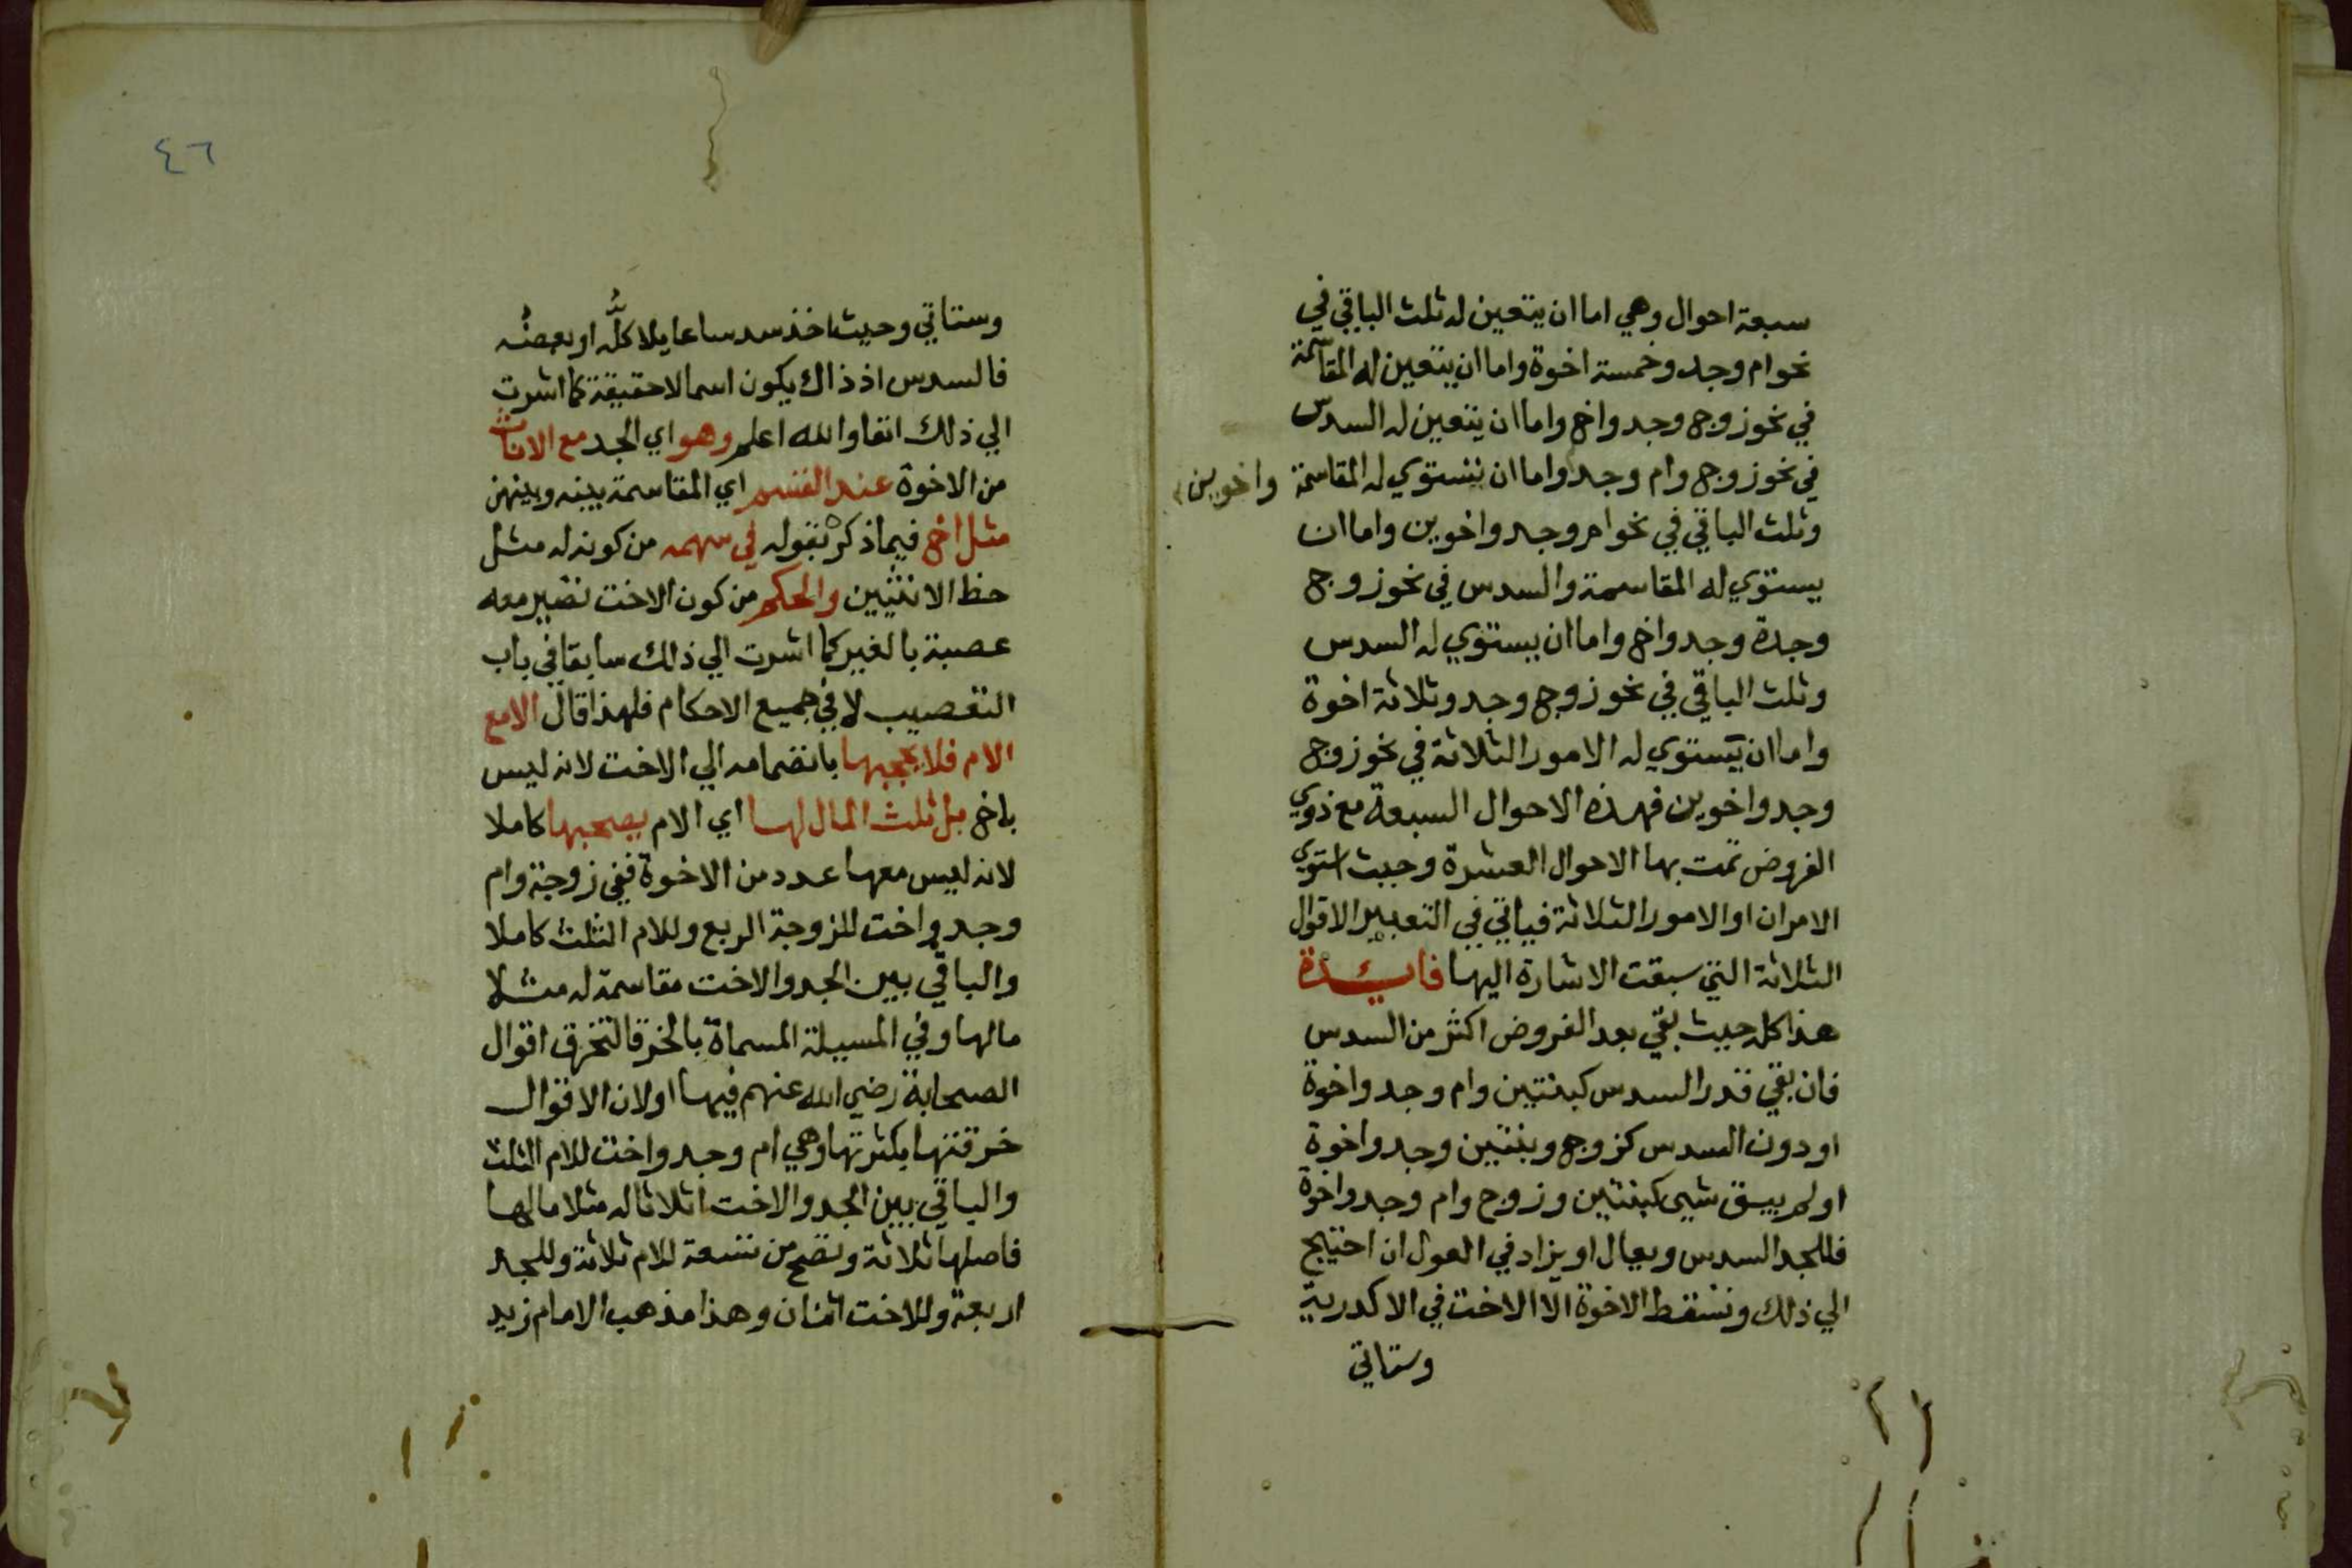 سبعة احوال وهي اما ان يتعين له ثلث الباقي في
نحو ام وجد وخمسة اخوة واما ان يتعين له المقاسمة
في نحو زوج وجد واخ واما ان يتعين له السدس
في نحو زوج وام وجد واما ان تستوي له المقاسمة
واخوين
وثلث الباقي في نحو ام وجد واخوين واما ان
يستوي له المقاسمة والسدس في نحو زوج
وجدة وجد واخ واما ان يستوي له السدس
وثلث الباقي في نحو زوج وجد وثلاثة اخوة
واما ان يستوي له الامور الثلاثة في نحو زوج
وجد واخوين فهذه الاحوال السبعة مع ذوي
الفروض تمت بها الاحوال العشرة وحيث استوي
الامران او الامور الثلاثة فياتي في التعبير الاقوال
الثلاثة التي سبقت الاشارة اليها فايدة
هذا كله حيث بقي بعد الفروض اكثر من السدس
فان بقي قدر السدس كبنتين وام وجد واخوة
او دون السدس كزوج وبنتين وجد واخوة
او لم يبق شيى كبنتين وزوج وام وجد واخوة
فللجد السدس ويعال او يزاد في العول ان احتيج
الي ذلك وتسقط الاخوة الا الاخت في الاكدرية
وستاتي
٤٦
وستاتي وحيث اخذ سدسا عايلا كلُّه او بعضُه
فالسدس اذ ذاك يكون اسما لا حقيقة كما اشرت
الي ذلك انفا والله اعلم وهو اي الجد مع الاناث
من الاخوة عند القسم اي المقاسمة بينه وبينهن
مثل اخ فيما ذكر بقوله في سهمه من كونه له مثل
حظ الانثيين والحكم من كون الاخت تصير معه
عصبة بالغير كما اشرت الي ذلك سابقا في باب
التعصيب لا في جميع الاحكام فلهذا قال الا مع
الام فلا يحجبها بانضمامه الي الاخت لانه ليس
باخ بل ثلث المال لها اي الام يصحبها كاملا
لانه ليس معها عدد من الاخوة ففي زوجة وام
وجد واخت للزوجة الربع وللام الثلث كاملا
والباقي بين الجد والاخت مقاسمة له مثلا
مالها وفي المسيلة المسماة بالخرقا لتخرق اقوال
الصحابة رضي الله عنهم فيها او لان الاقوال
خرقتها بكثرتها وهي ام وجد واخت للام الثلث
والباقي بين الجد والاخت اثلاثا له مثلا مالها
فاصلها ثلاثة وتصح من تسعة للام ثلاثة وللجد
اربعة وللاخت اثنان وهذا مذهب الامام زيد